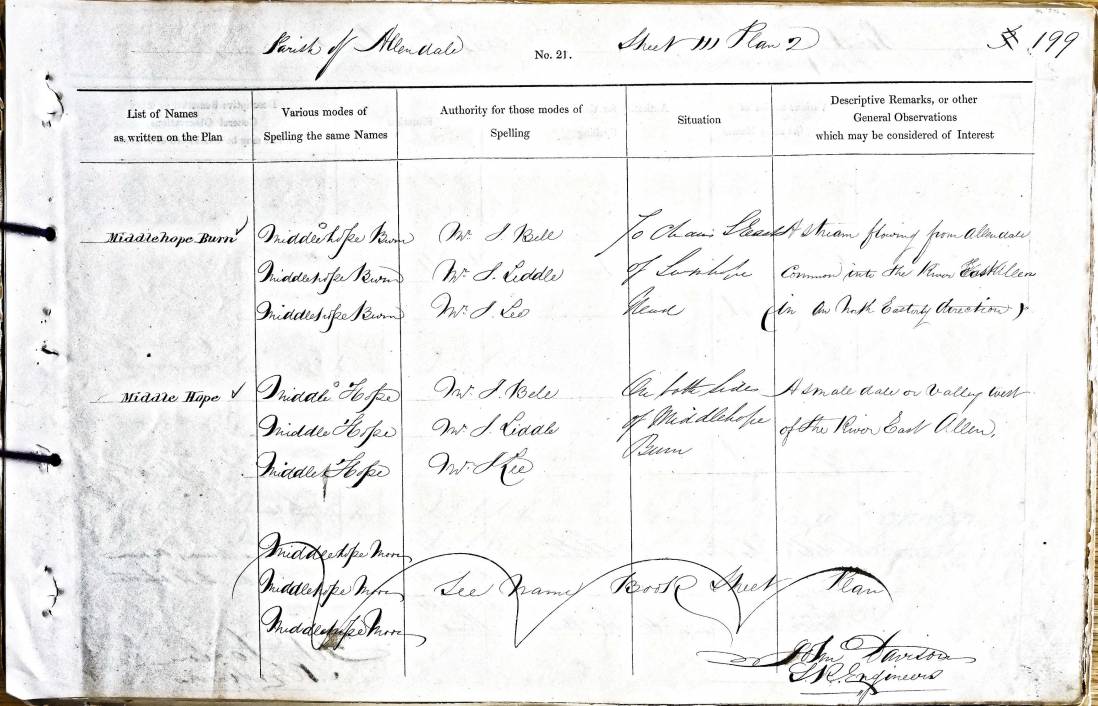 Parish of Allendale No. 21. Sheet 111 Plan 2 199
List of Names as written on the Plan
Various modes of Spelling the same Names
Authority for those modes of Spelling
Situation
Descriptive Remarks, or other General Observations which may be considered of Interest
Middlehope Burn Middlehope Burn Mr. J. Bell 70 Chains A stream flowing from Allendale
Middlehope Burn Mr. J. Liddle of Swinhope Common into the River East Allen
Middlehope Burn Mr. J. Lee Head (in an North Easterly direction)
Middle Hope Middle Hope Mr. J. Bell On both sides A small dale or Valley west
Middle Hope Mr. J. Liddle of Middlehope of the River East Allen,
Middle Hope Mr. J Lee Burn
Middlehope Moor
Middlehope Moor See Name Book Sheet Plan
Middlehope Moor
John Davison
S.R. Engineers